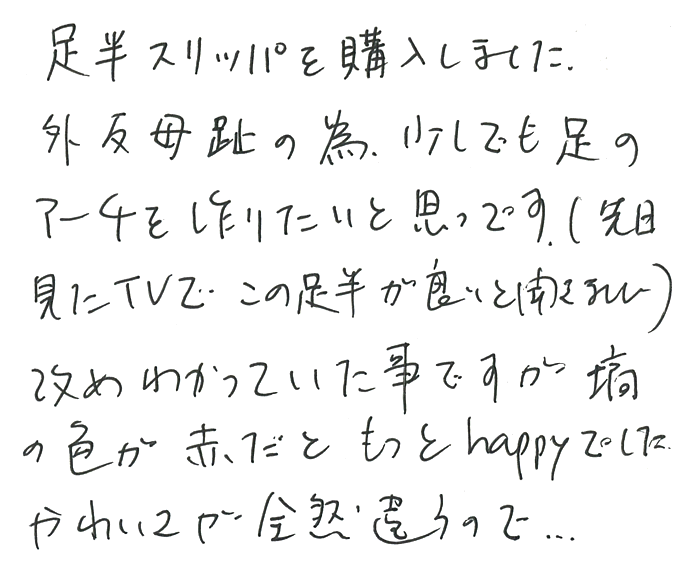 足半スリッパを購入しました.
外反母趾の為、少しでも足の
アーチを作りたいと思ってです.(先日
見たTVでこの足半が良いと聞きました)
改めわかっていた事ですが
の色が赤だともっとhappyでした
かわいさが全然違うので...